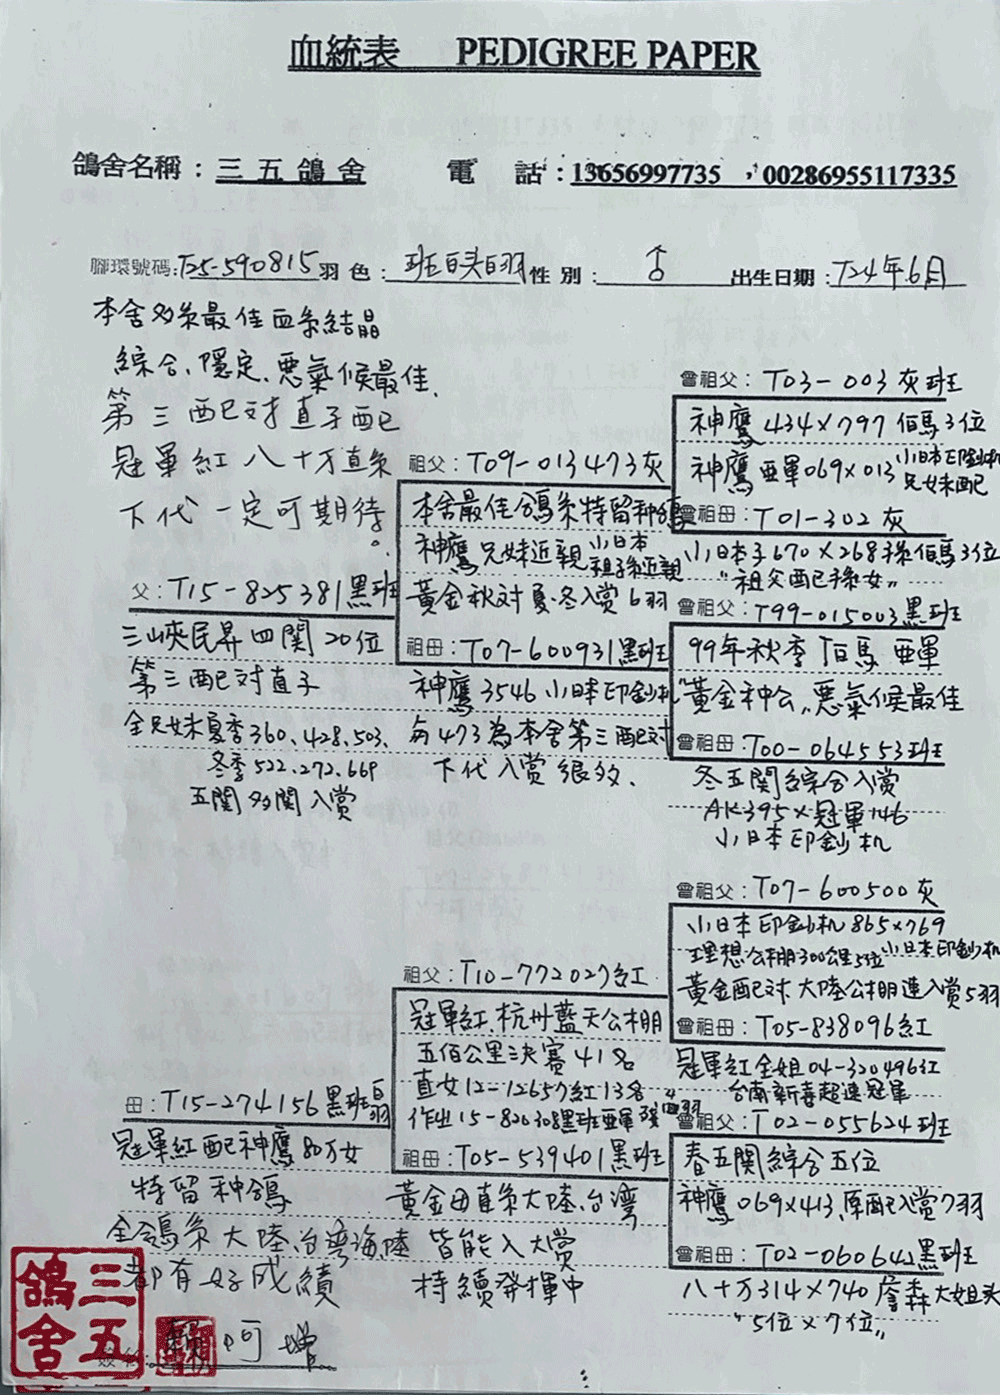 血統表 PEDIGREE PAPER
鴿舍名稱：三五鴿舍 電話：13656997735，00286955117335
腳環號碼：T25-590815 羽色：班白头白羽 性別：♂ 出生日期：T24年6月
本舍多系最佳血系結晶
綜合、隱定、悪氣候最佳、
第三配対直子配
冠軍紅八十万直系
下代一定可期待。
父：T15-825381黑班
三峽民昇四関20位
第三配対直子
全兄妹夏季360、428、503、
冬季522、272、669
五関多関入賞
祖父：T09-013473灰
本舍最佳鴿系特留种鴿
神鷹兄妹近親 小日本
祖子系近親
黃金秋対夏、冬入賞6羽
祖母：T07-600931黑班
神鷹3546小日本印鈔机
与473為本舍第三配対
下代入賞很多、
曾祖父：T03-003灰班
神鷹434×797佰馬3位
神鷹亜軍069×013小日本印鈔机
兄妹配
曾祖母：T01-302灰
小日本子670×268孫佰馬3位
"祖父配孫女"
曾祖父：T99-015003黑班
99年秋季佰馬亜軍
"黃金种公"悪氣候最佳
曾祖母：T00-064553班
冬五関綜合入賞
AK395×冠軍746
小日本印鈔机
母：T15-274156黑班白羽
冠軍紅配神鷹80万女
特留种鴿
全鴿系大陸、台湾海陸
都有好成績
祖父：T10-772027紅
冠軍紅、杭州藍天公棚
五佰公里決賽41名
直女12-12657紅13名
作出15-820308黑班亜軍
祖母：T05-539401黑班
黃金母直系大陸、台湾
皆能入大賞
持續發揮中
曾祖父：T07-600500灰
小日本印鈔机865×769
理想公棚300公里5位小日本印鈔机
黃金配対大陸公棚連入賞5羽
曾祖母：T05-838096紅
冠軍紅全姐04-320496紅
台南新喜超速冠軍
曾祖父：T02-055624班
春五関綜合五位
神鷹069×413、原配入賞7羽
曾祖母：T02-060642黑班
八十万314×740詹森大姐头
"5位×7位"
三五鴿舍